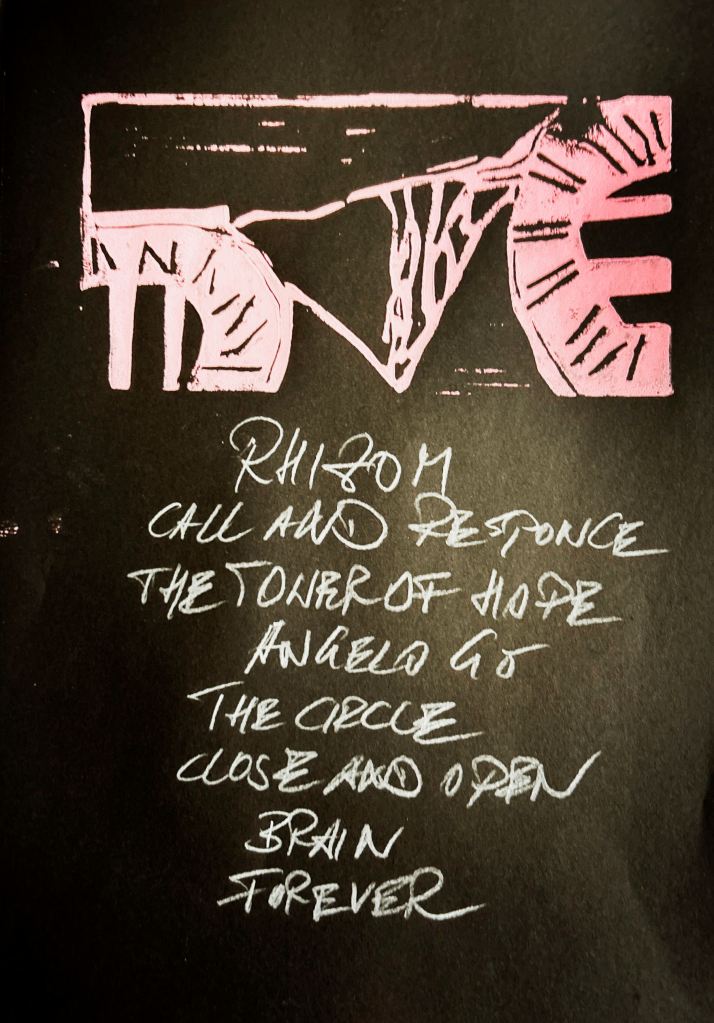 RHIZOM
CALL AND RESPONCE
THE TOWER OF HOPE
ANGELO GO
THE CIRCLE
CLOSE AND OPEN
BRAIN
FOREVER